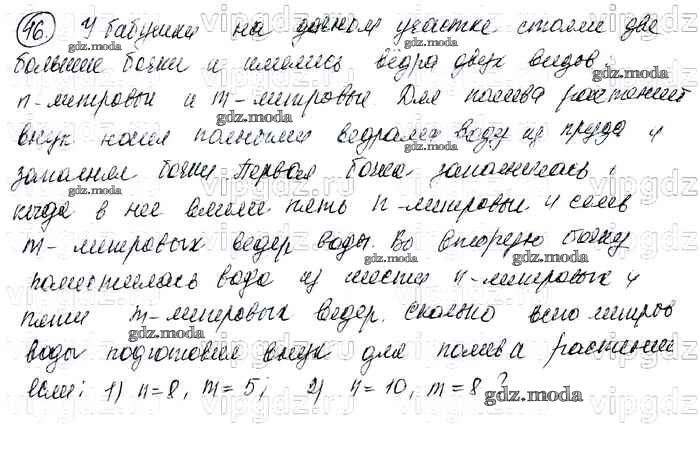 96. У бабушки на дачном участке стояли две
большие бочки и имелись вёдра двух видов:
n-литровые и m-литровые Для полива растений
внук носил полными ведрами воду из пруда и
заполнял бочки. Первая бочка заполнилась,
когда в нее влили пять n-литровых и семь
m-литровых ведер воды. Во вторую бочку
поместилась вода из шести n-литровых и
пяти m-литровых ведер. Сколько всего литров
воды подготовил внук для полива растений
если: 1) n=8, m=5; 2) n=10, m=8?
gdz.moda
vipgdz.ru